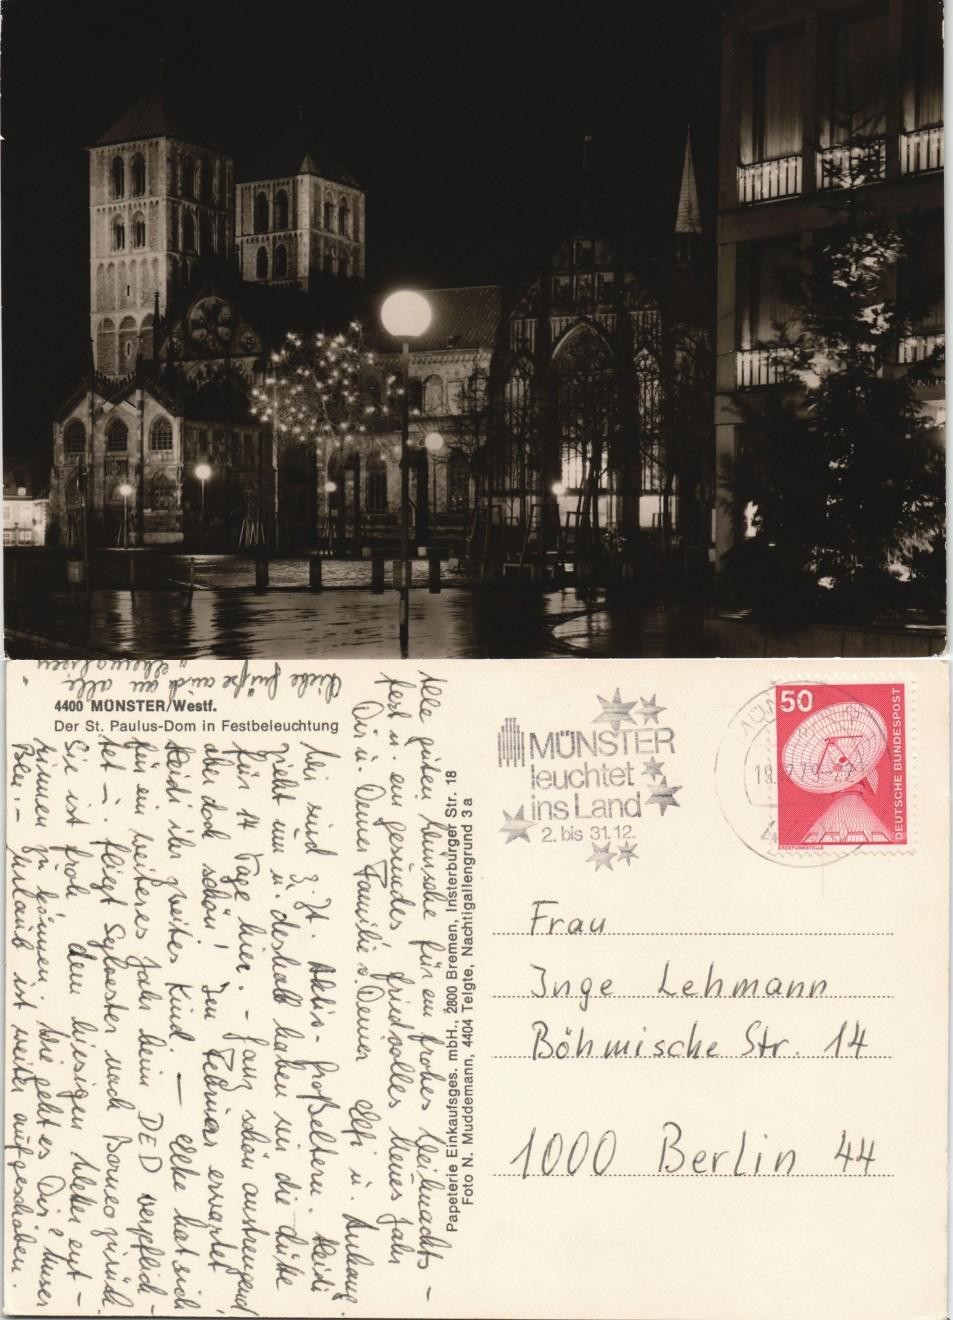 4400 MÜNSTER/Westf.
Der St. Paulus-Dom in Festbeleuchtung
Alle guten Wünsche für ein frohes Weihnachts-
fest u. ein gesundes friedvolles Neues Jahr
Dir u. Deiner Familie v. Deiner Elfi u. Anhang.
Wir sind z. Zt. Aktiv-Großeltern. Heidi
zieht um u. deshalb haben wir die
für 14 Tage hier. - Ganz schön anstrengend,
aber doch schön! Im Februar erwartet
Heidi ihr zweites Kind. — Elke hat sich
für ein weiteres Jahr beim DED verpflich-
tet - fliegt Sylvester nach Borneo zurück.
Sie ist froh dem hiesigen Wetter ent-
rinnen zu können. Wie geht es Dir? Unser
Urlaub ist weiter aufgeschoben.
Liebe Grüße auch an alle
"ehemaligen
Papeterie Einkaufsges. mbH., 2800 Bremen, Insterburger Str. 18
Foto N. Muddemann, 4404 Telgte, Nachtigallengrund 3 a
MÜNSTER
leuchtet
ins Land
2. bis 31.12.
50
DEUTSCHE BUNDESPOST
ERDEFUNKSTELLE
Frau
Inge Lehmann
Böhmische Str. 14
1000 Berlin 44